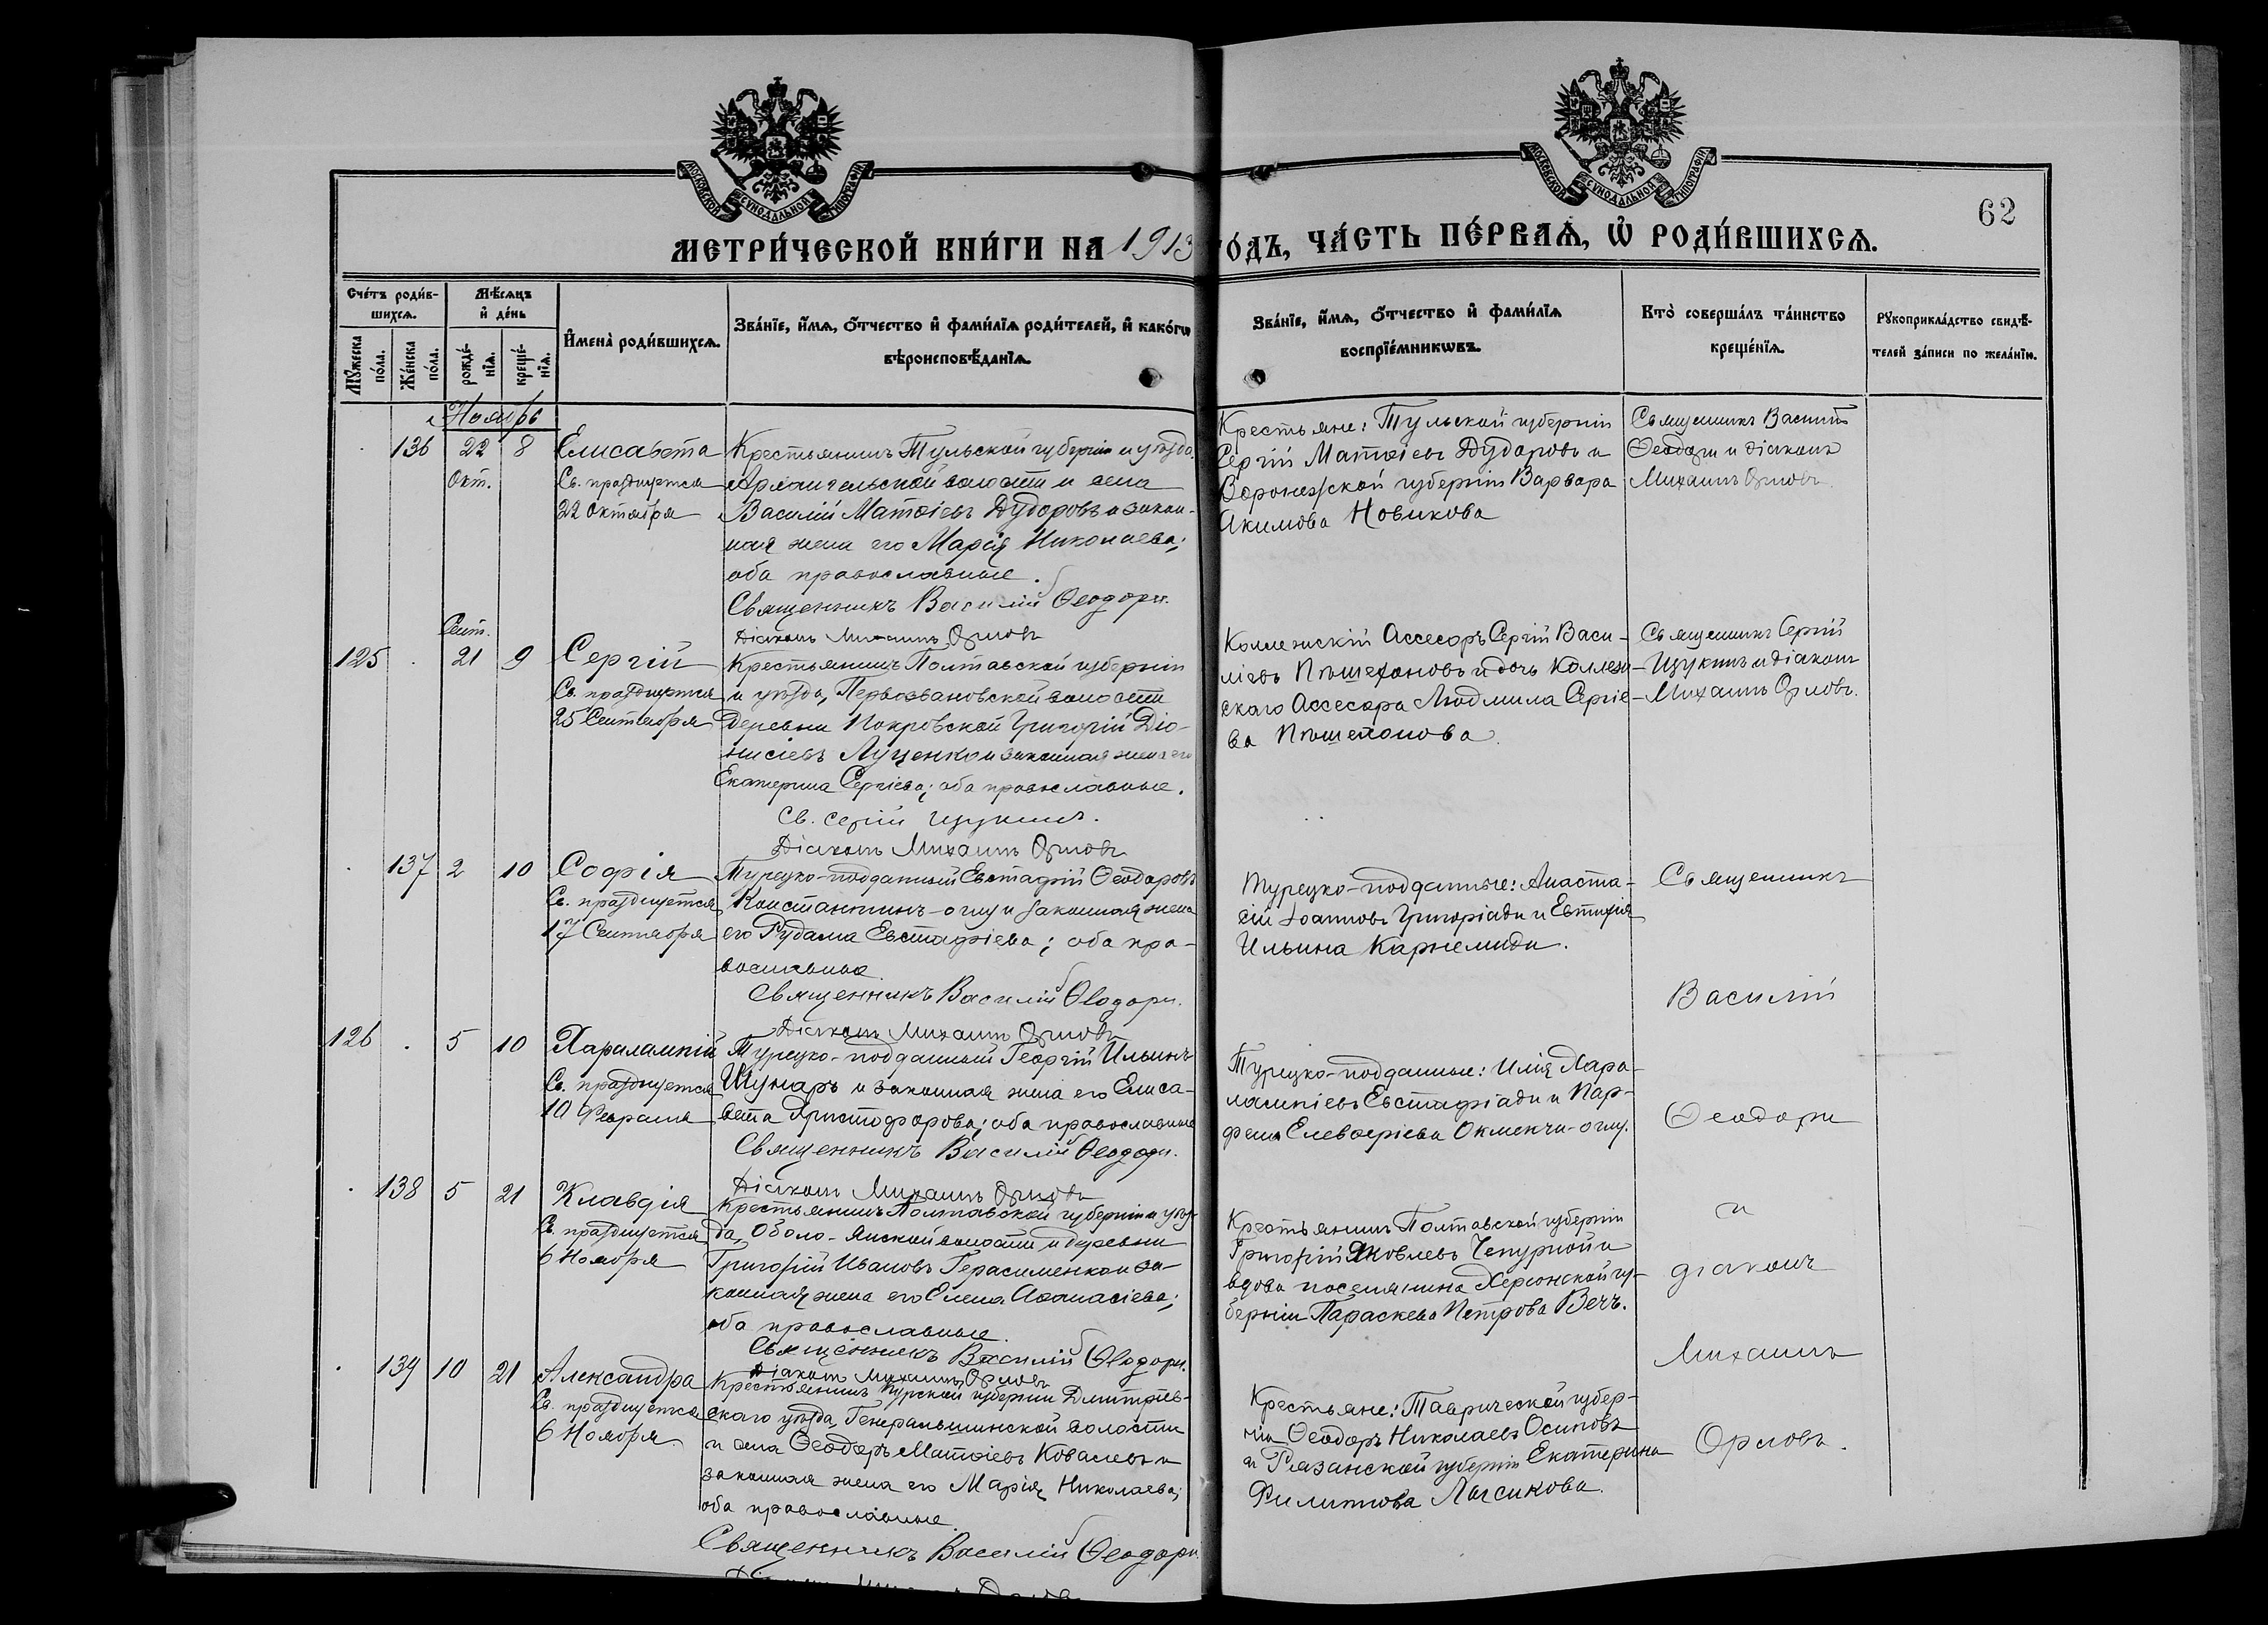 МОСКОВСКОЙ СѴНОДАЛЬНОЙ ТИПОГРАФІИ
МОСКОВСКОЙ СѴНОДАЛЬНОЙ ТИПОГРАФІИ
62
МЕТРИ́ЧЕСКОЙ КНИ́ГИ НА 1913 ГО́ДЪ, ЧА́СТЬ ПЕ́РВАѦ, Ѡ҆ РОДИ́ВШИХСѦ.
Сче́тъ роди́в-
шихсѧ.
Мꙋ́жеска
по́ла.
Же́нска
по́ла.
Мѣ́сѧцъ
и҆ де́нь
рожде́-
нїѧ.
креще́-
нїѧ.
И҆мена̀ роди́вшихсѧ.
Зва́нїе, и҆́мѧ, ѻ҆́тчество и҆ фами́лїѧ роди́телей, и҆ како́гѡ
вѣроисповѣ́данїѧ.
Зва́нїе, и҆́мѧ, ѻ҆́тчество и҆ фами́лїѧ
воспрїе́мникѡвъ.
Кто̀ соверша́лъ та́инство
креще́нїѧ.
Рꙋкоприкла́дство свидѣ́-
телей за́писи по жела́нїю.
Ноябрь
136 22 8 Елисавета
Окт.
Св. празднуется
22 Октября
Крестьянинъ Тульской губерніи и уѣзда,
Архангельской волости и села
Василій Матѳіевъ Дудоровъ и закон-
ная жена его Марія Николаева;
оба православные.
Священникъ Василій Ѳеодори.
Діаконъ Михаилъ Орловъ
Крестьяне: Тульской губерніи
Сергій Матѳіевъ Дудоровъ и
Воронежской губерніи Варвара
Акимова Новикова
Священникъ Василій
Ѳеодори и діаконъ
Михаилъ Орловъ
Сент.
125 21 9 Сергій
Св. празднуется
25 Сентября
Крестьянинъ Полтавской губерніи
и уѣзда, Первозвановской волости
деревни Покровской Григорій Діо-
нисіевъ Луценко и законная жена его
Екатерина Сергіева; оба православные.
Св. Сергій Щукинъ.
Діаконъ Михаилъ Орловъ
Коллежскій Ассесоръ Сергій Васи-
ліевъ Пѣшехоновъ и дочь Коллеж-
скаго Ассесора Людмила Сергіе-
ва Пѣшехонова.
Священникъ Сергій
Щукинъ и діаконъ
Михаилъ Орловъ.
137 2 10 Софія
Св. празднуется
17 Сентября
Турецко-подданный Евстафій Ѳеодоровъ
Константинъ-оглу и законная жена
его Рудама Евстафіева; оба пра-
вославные.
Священникъ Василій Ѳеодори.
Діаконъ Михаилъ Орловъ
Турецко-подданные: Анаста-
сій Іоанновъ Григоріади и Евтихія
Ильина Карнелиди.
Священникъ
Василій
126 5 10 Харалампій
Св. празднуется
10 Февраля
Турецко-подданный Георгій Ильинъ
Шунаръ и законная жена его Елиса-
вета Христофорова; оба православные
Священникъ Василій Ѳеодори.
Діаконъ Михаилъ Орловъ
Турецко-подданные: Илія Хара-
лампіевъ Евстафіади и Пар-
фена Елевѳеріева Окменчи-оглу.
Ѳеодори
138 5 21 Клавдія
Св. празднуется
6 Ноября
Крестьянинъ Полтавской губерніи и уѣз-
да, волости и деревни
Григорій Ивановъ Герасименко и за-
конная жена его Елена Аѳанасіева;
оба православные.
Священникъ Василій Ѳеодори.
Діаконъ Михаилъ Орловъ
Крестьянинъ Полтавской губерніи
Григорій Яковлевъ Чепурной и
вдова поселянина Херсонской гу-
берніи Параскева Петрова Вечъ.
и
діаконъ
Михаилъ
139 10 21 Александра
Св. празднуется
6 Ноября.
Крестьянинъ Курской губерніи Дмитріев-
скаго уѣзда, Генеральшинской волости
и села Ѳеодоръ Матѳіевъ Ковалевъ и
законная жена его Марія Николаева;
оба православные.
Священникъ Василій Ѳеодори.
Крестьяне: Таврической губер-
ніи Ѳеодоръ Николаевъ Осиповъ
и Рязанской губерніи Екатерина
Филиппова Лысикова.
Орловъ.